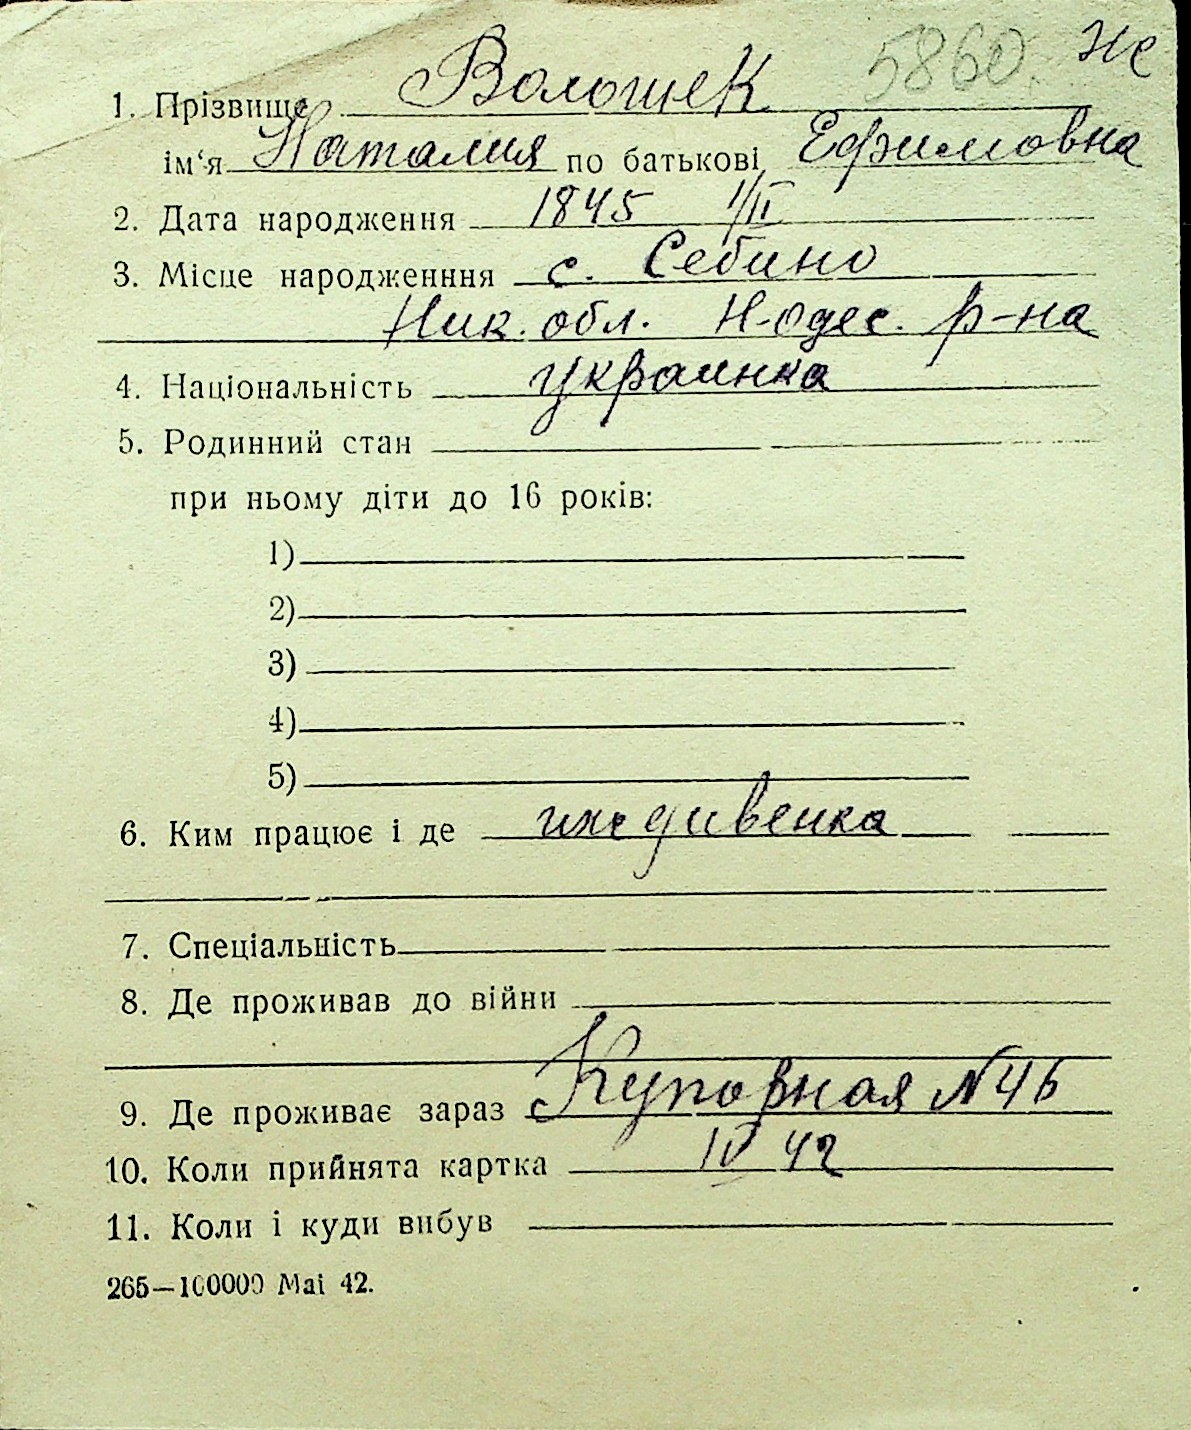 5860 же
1. Прізвище Волошек
ім‘я Наталия по батькові Ефимовна
2. Дата народження 1845 1/II
3. Місце народженння с. Себино
Ник. обл. Н-Одес. р-на
4. Національність украинка
5. Родинний стан
при ньому діти до 16 років:
1)
2)
3)
4)
5)
6. Ким працює і де иждивенка
7. Спеціальність
8. Де проживав до війни
9. Де проживає зараз №46
10. Коли прийнята картка IV 42
11. Коли і куди вибув
265—100000 Mai 42.